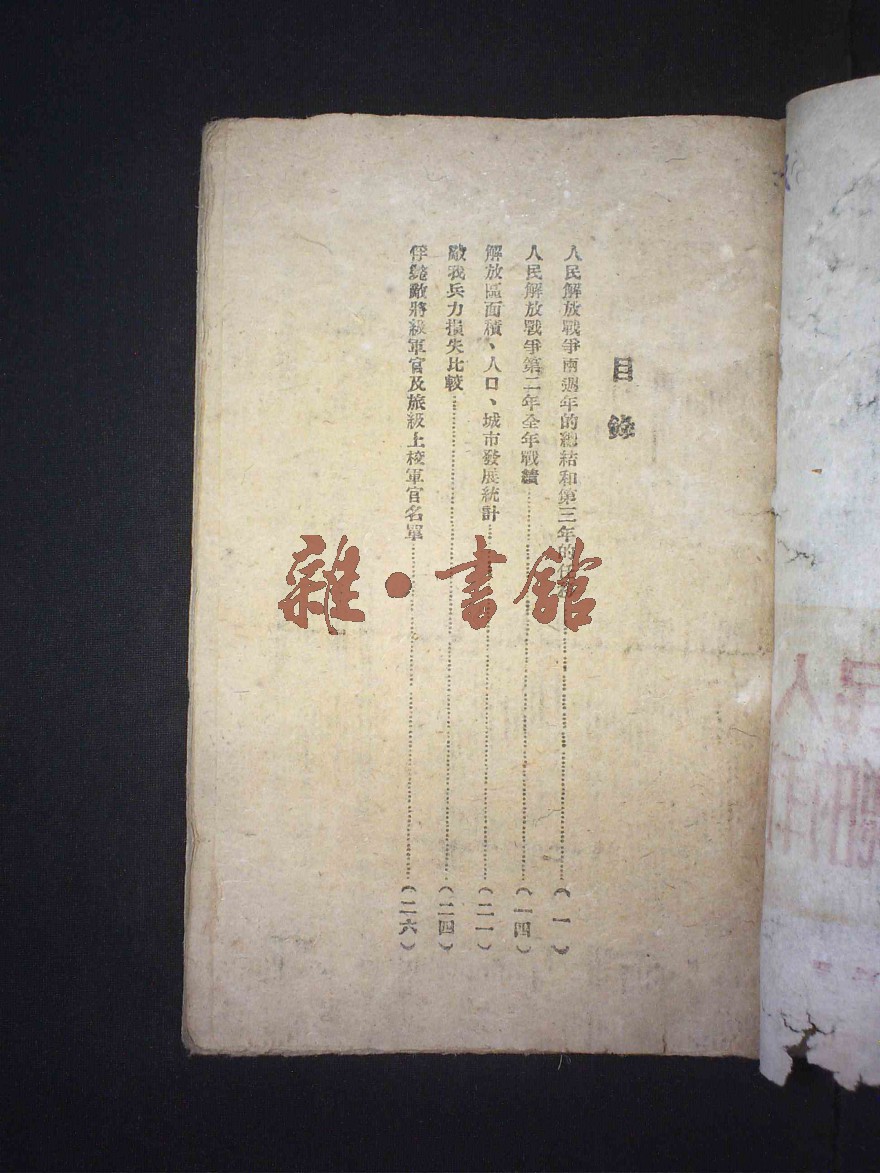 目錄
人民解放戰爭兩週年的總結和第三年的任務……(一)
人民解放戰爭第二年全年戰績……(一四)
解放區面積、人口、城市發展統計……(二一)
敵我兵力損失比較……(二四)
俘斃敵將級軍官及旅級上校軍官名單……(二六)
雜·書館